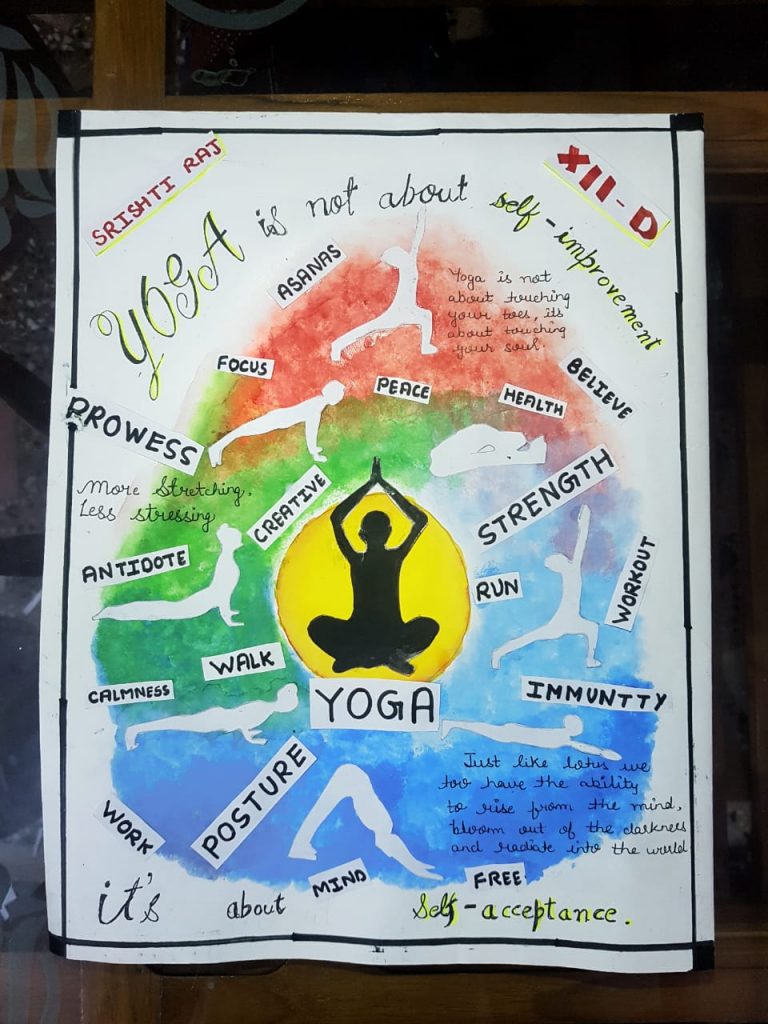 SRISHTI RAJ
XII-D
YOGA is not about self-improvement
ASANAS
Yoga is not
about touching
your toes, its
about touching
your soul.
FOCUS
PEACE
HEALTH
BELIEVE
PROWESS
More Stretching,
Less stressing
CREATIVE
STRENGTH
ANTIDOTE
RUN
WORKOUT
WALK
CALMNESS
YOGA
IMMUNTTY
Just like lotus we
too have the ability
to rise from the mind,
bloom out of the darkness
and radiate into the world
POSTURE
WORK
MIND
FREE
it's about self-acceptance.